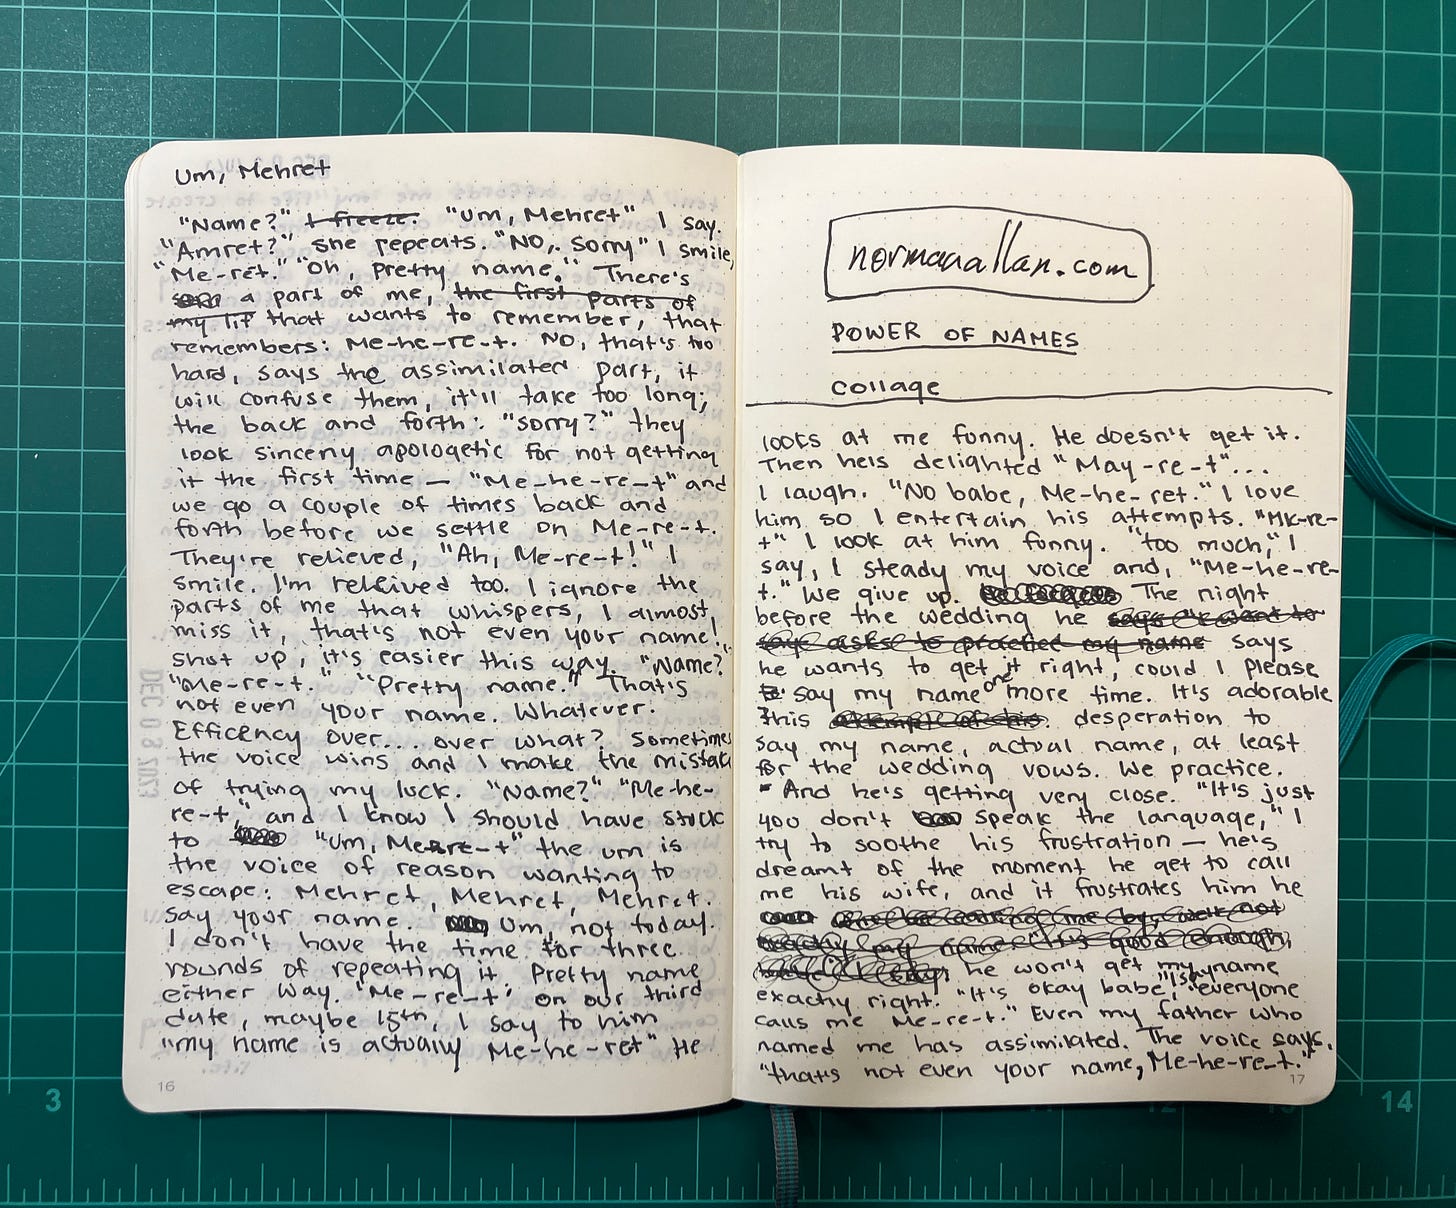 Um, Mehret
"Name?" I freeze. "Um, Mehret" I say.
"Amret?" she repeats. "No, sorry" I smile,
"Me-ret." "Oh, pretty name." There's
a part of me, the first parts of
my lif that wants to remember, that
remembers: Me-he-re-t. No, that's too
hard, says the assimilated part, it
will confuse them, it'll take too long;
the back and forth: "sorry?" they
look sincerly apologetic for not getting
it the first time — "Me-he-re-t" and
we go a couple of times back and
forth before we settle on Me-re-t.
They're relieved, "Ah, Me-re-t!" I
smile. I'm releived too. I ignore the
parts of me that whispers, I almost
miss it, that's not even your name!
shut up, it's easier this way. "Name?"
"Me-re-t." "Pretty name." That's
not even your name. Whatever.
Efficency over... over what? Sometimes
the voice wins and I make the mistak
of trying my luck. "Name?" "Me-he-
re-t," and I know I should have stuck
to "Um, Mehre-t" the um is
the voice of reason wanting to
escape: Mehret, Mehret, Mehret.
Say your name. Um, not today.
I don't have the time for three
rounds of repeating it. Pretty name
either way. "Me-re-t" on our third
date, maybe 15th, I say to him
"my name is actually Me-he-ret" He
16
DEC 0 8 2023
normanallan.com
POWER OF NAMES
Collage
looks at me funny. He doesn't get it.
Then he's delighted "May-re-t"...
I laugh. "No babe, Me-he-ret." I love
him so I entertain his attempts. "Mk-re-
t" I look at him funny. "too much," I
say, I steady my voice and, "Me-he-re-
t." We give up. The night
before the wedding he says he want to
says asks to practice my name says
he wants to get it right, could I please
say my name one more time. It's adorable
this attempt of his. desperation to
say my name, actual name, at least
for the wedding vows. We practice.
And he's getting very close. "It's just
you don't speak the language," I
try to soothe his frustration — he's
dreamt of the moment he get to call
me his wife, and it frustrates him he
my name "It's good enough,
he won't get my name
exactly right. "It's okay babe," I say "everyone
calls me Me-re-t." Even my father who
named me has assimilated. The voice says,
"that's not even your name, Me-he-re-t."
17
3
12
13
14